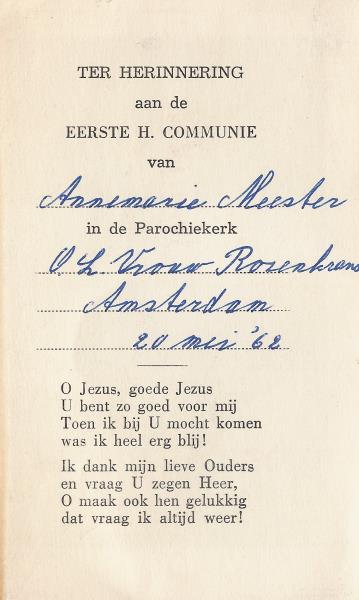 TER HERINNERING
aan de
EERSTE H. COMMUNIE
van
Annemarie Meester
in de Parochiekerk
O. L. Vrouw Rosenkrans
Amsterdam
20 mei '62
O Jezus, goede Jezus
U bent zo goed voor mij
Toen ik bij U mocht komen
was ik heel erg blij!
Ik dank mijn lieve Ouders
en vraag U zegen Heer,
O maak ook hen gelukkig
dat vraag ik altijd weer!